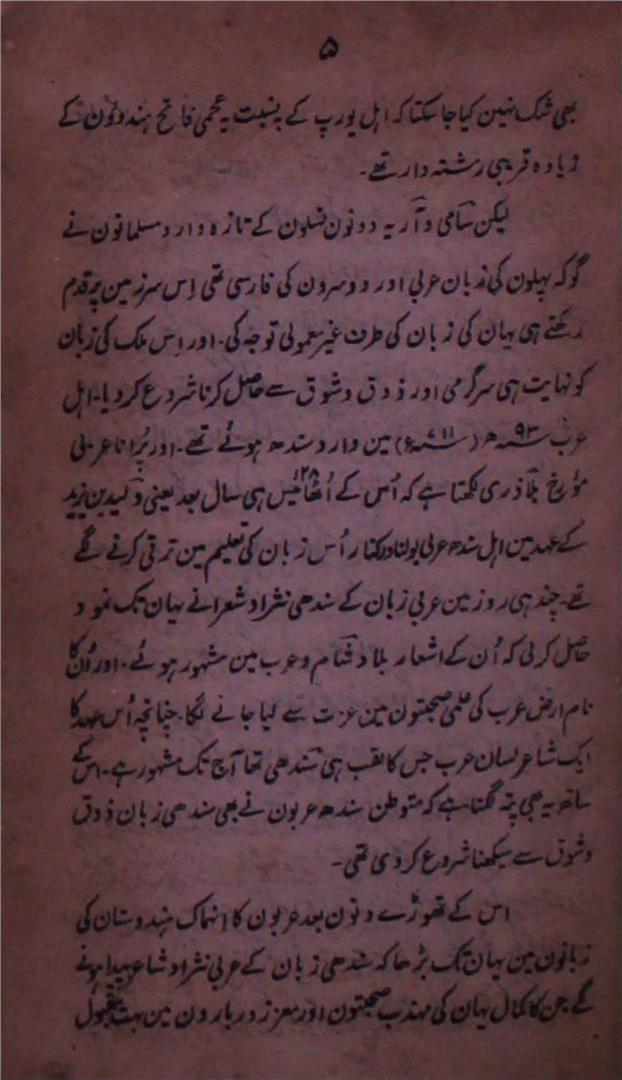 ۵
بھی شک نہین کیا جا سکتا کہ اہل یورپ کے بہ نسبت یہ عجمی فاتح ہندوؤن کے
زیادہ قریبی رشتہ دار تھے۔
لیکن سامی و آریہ دونون نسلون کے تازہ وارد مسلمانون نے
گو کہ پہلون کی زبان عربی اور دوسرون کی فارسی تھی اِس سرزمین پر قدم
رکھتے ہی یہان کی زبان کی طرف غیر معمولی توجہ کی۔ اور اِس ملک کی زبان
کو نہایت ہی سرگرمی اور ذوق و شوق سے حاصل کرنا شروع کر دیا۔ اہل
عرب سنہ ۹۳ھ (سنہ ۷۱۱ء) مین وارد سندھ ہوئے تھے۔ اور پُرانا عربی
مؤرخ بلاذری لکھتا ہے کہ اُس کے اُٹھائیس ۲۸ ہی سال بعد یعنی ولید بن یزید
کے عہد مین اہل سندھ عربی بولنا درکنار اُس زبان کی تعلیم مین ترقی کرنے لگے
تھے۔ چند ہی روز مین عربی زبان کے سندھی نژاد شعرا نے یہان تک نمود
حاصل کر لی کہ اُن کے اشعار بلاد شام و عرب مین مشہور ہوئے۔ اور اُن کا
نام ارض عرب کی علمی صحبتون مین عزت سے لیا جانے لگا۔ چنانچہ اُس عہد کا
ایک شاعر لسان عرب جس کا لقب ہی سندھی تھا آج تک مشہور ہے۔ اس کے
ساتھ یہ بھی پتہ لگتا ہے کہ متوطن سندھ عربون نے بھی سندھی زبان ذوق
و شوق سے سیکھنا شروع کر دی تھی۔
اس کے تھوڑے دنون بعد عربون کا انہماک ہندوستان کی
زبانون مین یہان تک بڑھا کہ سندھی زبان کے عربی نژاد شاعر پیدا ہونے
لگے جن کا کمال یہان کی مہذب صحبتون اور معزز دربارون مین بہت مقبول